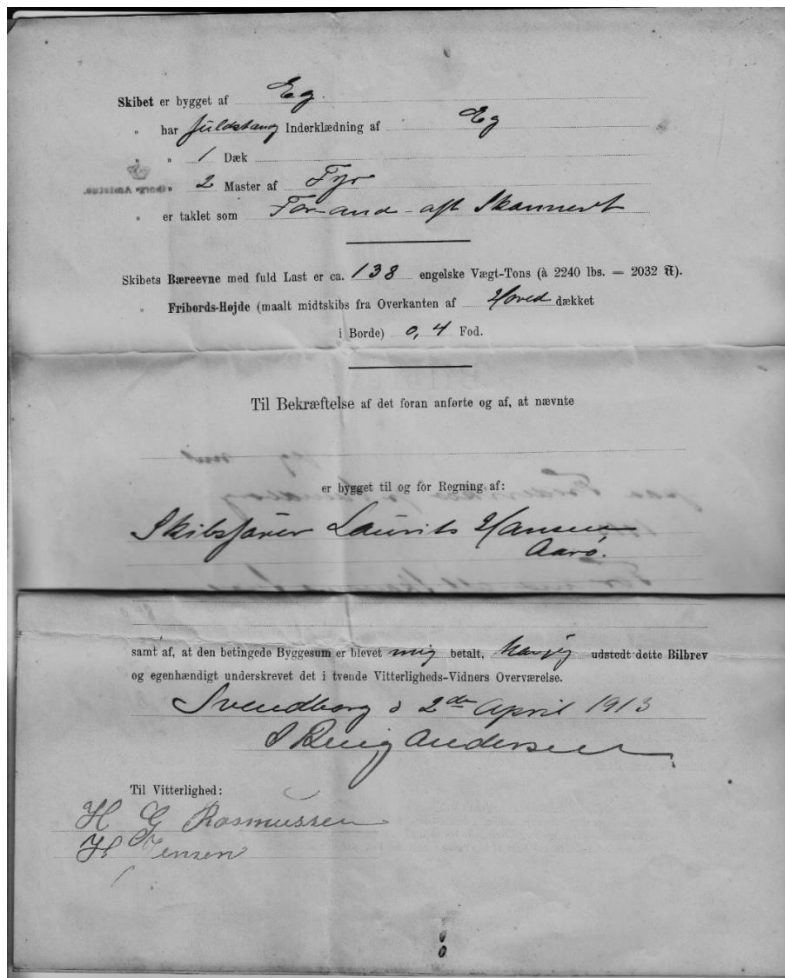 Skibet er bygget af Eg
" har fuldstænd Inderklædning af Eg
" " 1 Dæk
" " 2 Master af Fyr
" er taklet som For-and-aft Skonnert
Skibets Bæreevne med fuld Last er ca. 138 engelske Vægt-Tons (à 2240 lbs. = 2032 ℔).
" Fribords-Højde (maalt midtskibs fra Overkanten af Hoveddækket
i Borde) 0,4 Fod.
Til Bekræftelse af det foran anførte og af, at nævnte
er bygget til og for Regning af:
Skibsfører Laurits Hansen
Aarø.
samt af, at den betingede Byggesum er blevet mig betalt, har jeg udstedt dette Bilbrev
og egenhændigt underskrevet det i tvende Vitterligheds-Vidners Overværelse.
Svendborg d 2de April 1913
J Ring Andersen
Til Vitterlighed:
H G Rasmussen
H Jensen